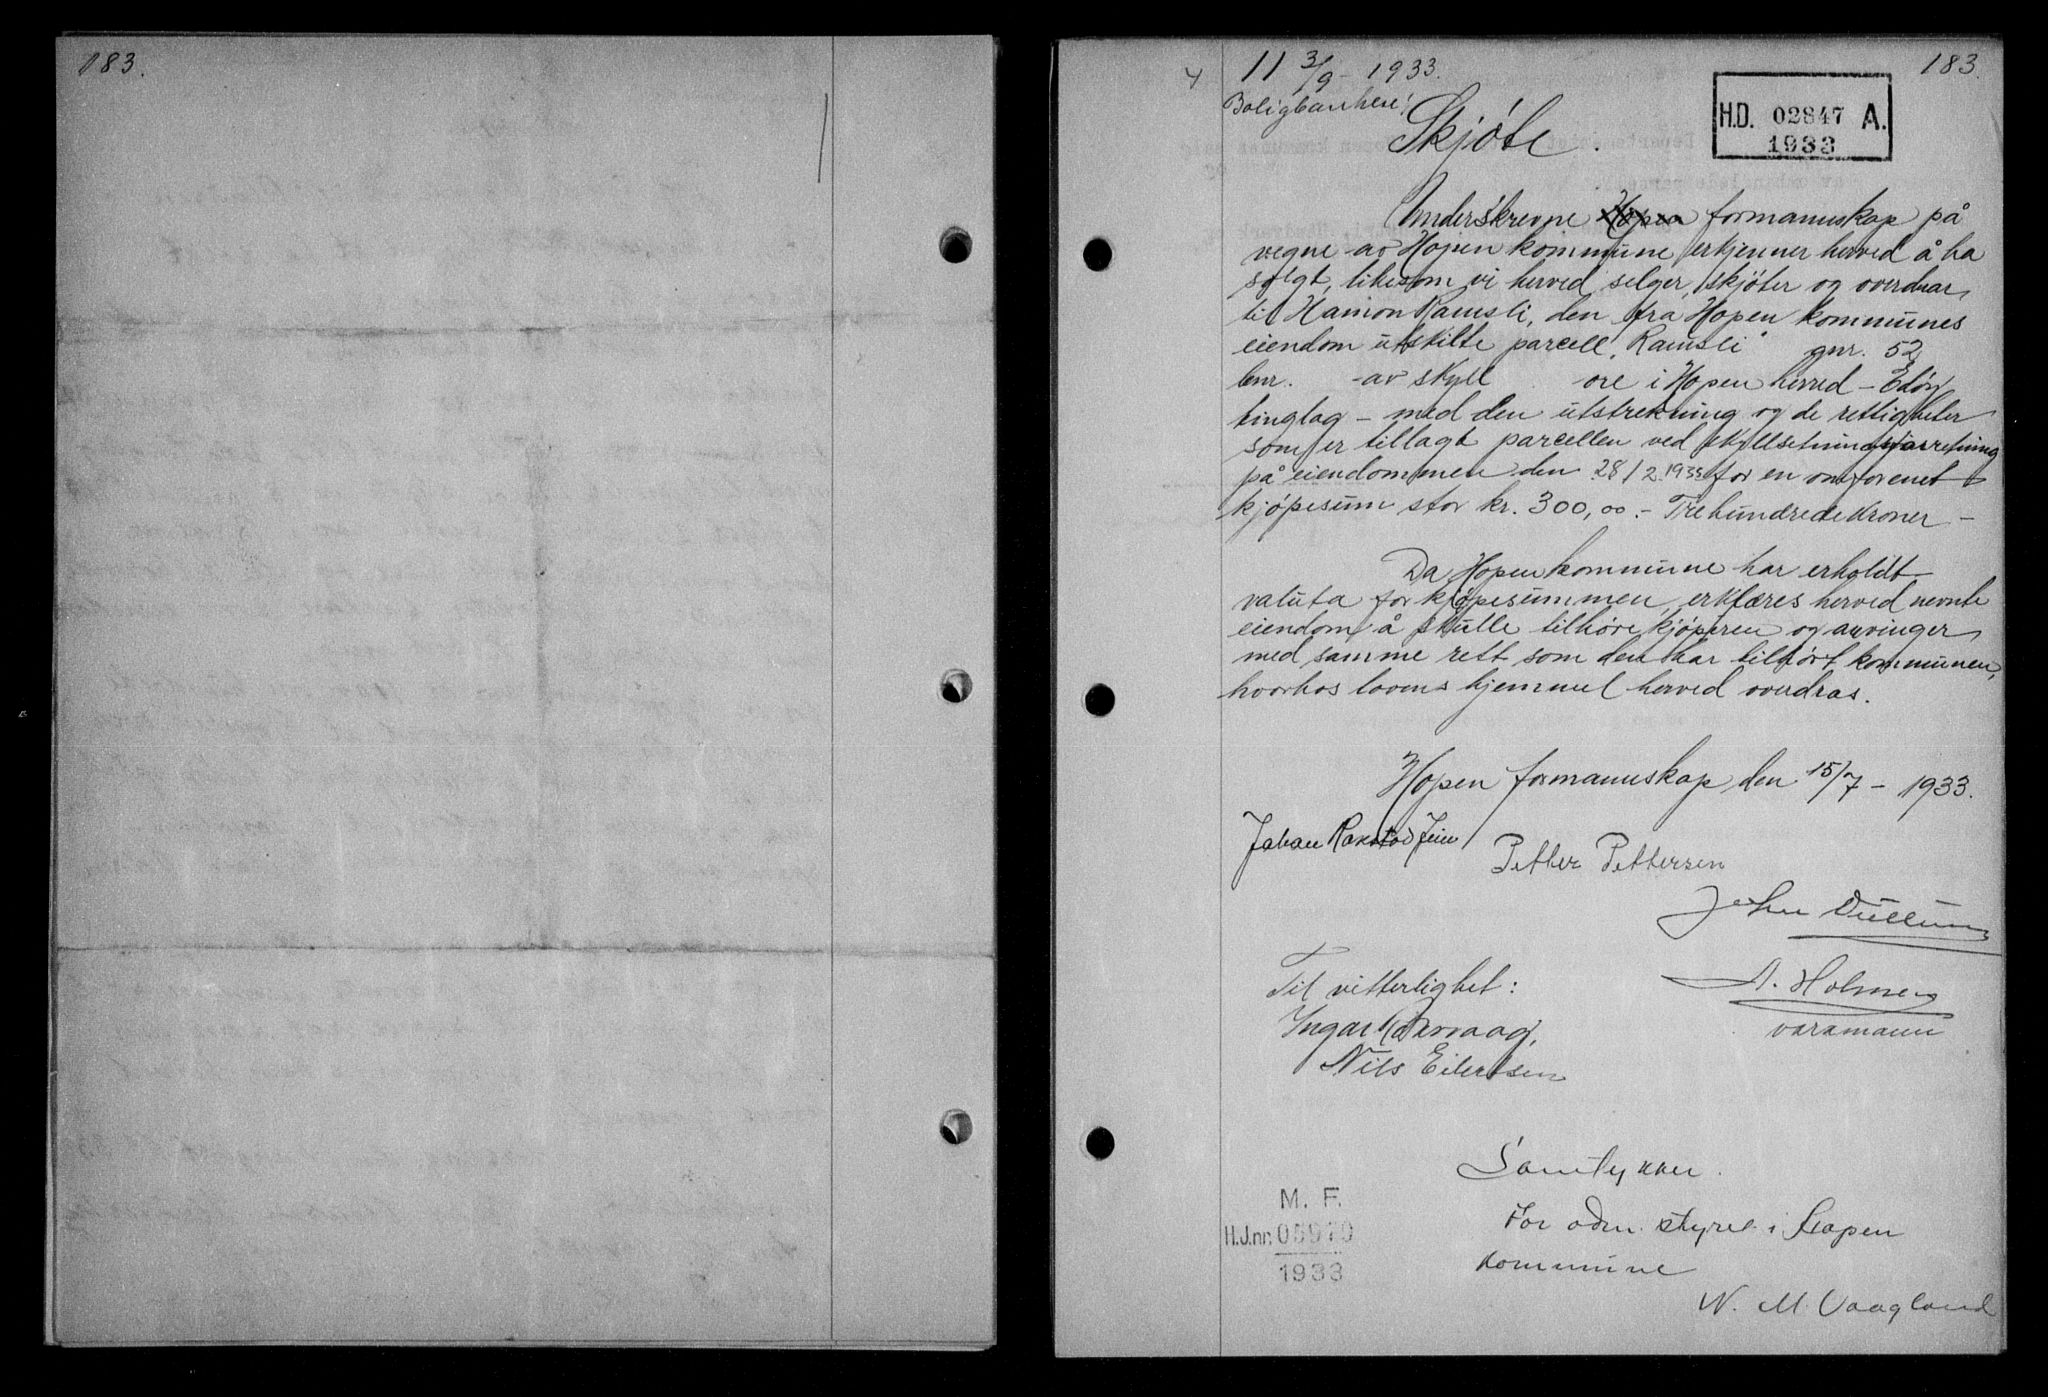 183.
11 3/9 - 1933.
183.
H.D. 02847 A.
1933
Skjøte.
Underskrevne formannskap på
vegne av Hopen kommune erkjenner herved å ha
solgt, likesom vi herved selger, skjøter og overdrar
til Ramsli, den fra Hopen kommunes
eiendom utskilte parcell, "Ramsli" gnr. 52
bnr. av skyll øre i Hopen herred - Edøy
tinglag - med den utstrekning og de rettigheter
som er tillagt parcellen ved skyllsetningsforretning
på eiendommen den 28/2 1933 for en omforenet
kjøpesum stor kr. 300,00.- Trehundredekroner -
Da Hopen kommune har erholdt
valuta for kjøpesummen, erklæres herved nevnte
eiendom å skulle tilhøre kjøperen og arvinger
med samme rett som den har tilhørt kommunen,
hvorhos lovens hjemmel herved overdras.
Hopen formannskap den 15/7 - 1933.
Johan
Petter Pettersen
John Dullum
A. Holmen
varamann
Til vitterlighet:
Ingar
Nils Eilertsen
Samtykker.
For odm. styret i Hopen
kommune
N. M. Vaagland
M. F.
H.J.nr. 05970
1933